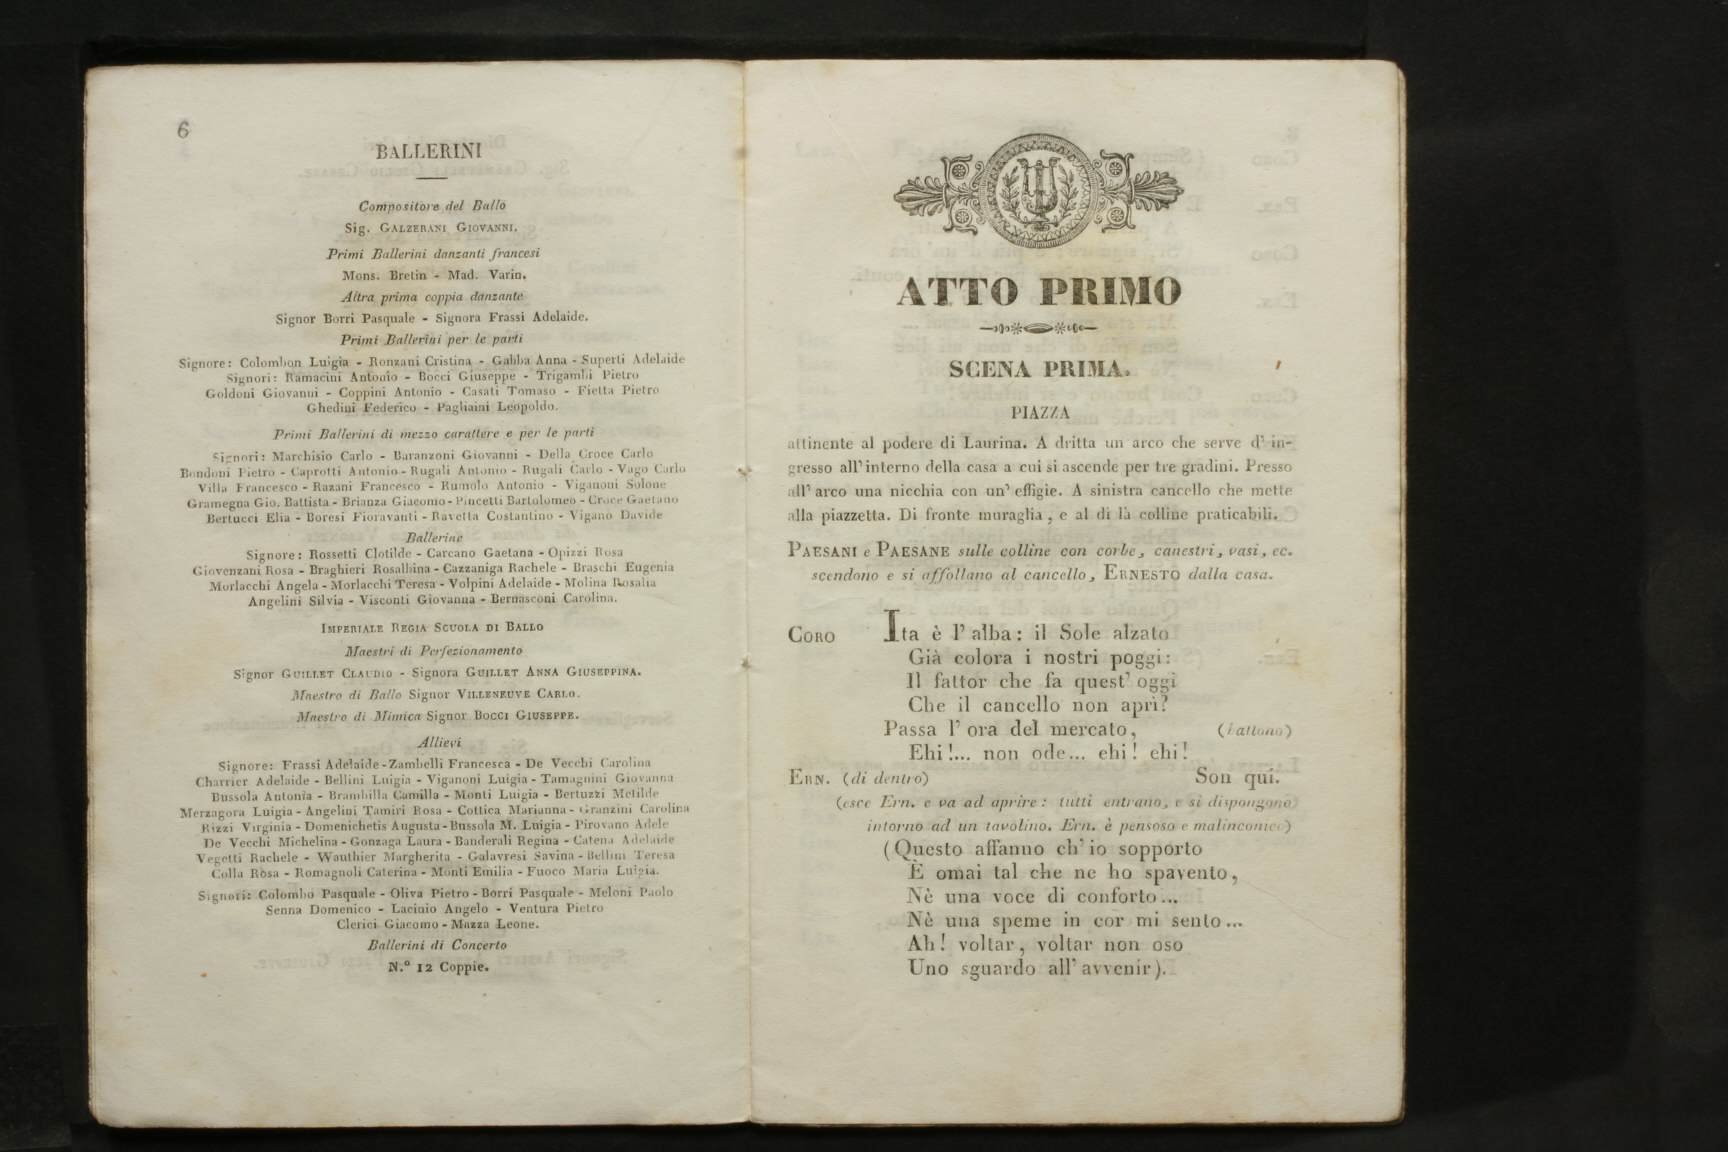 6
BALLERINI
Compositore del Ballo
Sig. GALZERANI GIOVANNI.
Primi Ballerini danzanti francesi
Mons. Bretin - Mad. Varin.
Altra prima coppia danzante
Signor Borri Pasquale - Signora Frassi Adelaide.
Primi Ballerini per le parti
Signore: Colombon Luigia - Ronzani Cristina - Gabba Anna - Superti Adelaide
Signori: Ramacini Antonio - Bocci Giuseppe - Trigambi Pietro
Goldoni Giovanni - Coppini Antonio - Casati Tomaso - Fietta Pietro
Ghedini Federico - Pagliaini Leopoldo.
Primi Ballerini di mezzo carattere e per le parti
Signori: Marchisio Carlo - Baranzoni Giovanni - Della Croce Carlo
Bondoni Pietro - Caprotti Antonio - Rugali Antonio - Rugali Carlo - Vago Carlo
Villa Francesco - Razani Francesco - Rumolo Antonio - Viganoni Solone
Gramegna Gio. Battista - Brianza Giacomo - Pincetti Bartolomeo - Croce Gaetano
Bertucci Elia - Boresi Fioravanti - Ravetta Costantino - Viganò Davide
Ballerine
Signore: Rossetti Clotilde - Carcano Gaetana - Opizzi Rosa
Giovenzani Rosa - Braghieri Rosalbina - Cazzaniga Rachele - Braschi Eugenia
Morlacchi Angela - Morlacchi Teresa - Volpini Adelaide - Molina Rosalia
Angelini Silvia - Visconti Giovanna - Bernasconi Carolina.
IMPERIALE REGIA SCUOLA DI BALLO
Maestri di Perfezionamento
Signor GUILLET CLAUDIO - Signora GUILLET ANNA GIUSEPPINA.
Maestro di Ballo Signor VILLENEUVE CARLO.
Maestro di Mimica Signor BOCCI GIUSEPPE.
Allievi
Signore: Frassi Adelaide - Zambelli Francesca - De Vecchi Carolina
Charrier Adelaide - Bellini Luigia - Viganoni Luigia - Tamagnini Giovanna
Bussola Antonia - Brambilla Camilla - Monti Luigia - Bertuzzi Metilde
Merzagora Luigia - Angelini Tamiri Rosa - Cottica Marianna - Granzini Carolina
Rizzi Virginia - Domenichetis Augusta - Bussola M. Luigia - Pirovano Adele
De Vecchi Michelina - Gonzaga Laura - Banderali Regina - Catena Adelaide
Vegetti Rachele - Wauthier Margherita - Galavresi Savina - Bellini Teresa
Colla Rosa - Romagnoli Caterina - Monti Emilia - Fuoco Maria Luigia.
Signori: Colombo Pasquale - Oliva Pietro - Borri Pasquale - Meloni Paolo
Senna Domenico - Lacinio Angelo - Ventura Pietro
Clerici Giacomo - Mazza Leone.
Ballerini di Concerto
N.° 12 Coppie.
ATTO PRIMO
SCENA PRIMA.
PIAZZA
attinente al podere di Laurina. A dritta un arco che serve d' in-
gresso all' interno della casa a cui si ascende per tre gradini. Presso
all' arco una nicchia con un' effigie. A sinistra cancello che mette
alla piazzetta. Di fronte muraglia, e al di là colline praticabili.
PAESANI e PAESANE sulle colline con corbe, canestri, vasi, ec.
scendono e si affollano al cancello, ERNESTO dalla casa.
CORO Ita è l' alba: il Sole alzato
Già colora i nostri poggi:
Il fattor che fa quest' oggi
Che il cancello non aprì?
Passa l' ora del mercato, (battono)
Ehi!... non ode... ehi! ehi!
ERN. (di dentro) Son qui.
(esce Ern. e va ad aprire: tutti entrano, e si dispongono
intorno ad un tavolino. Ern. è pensoso e malinconico)
(Questo affanno ch' io sopporto
È omai tal che ne ho spavento,
Nè una voce di conforto...
Nè una speme in cor mi sento...
Ah! voltar, voltar non oso
Uno sguardo all' avvenir).